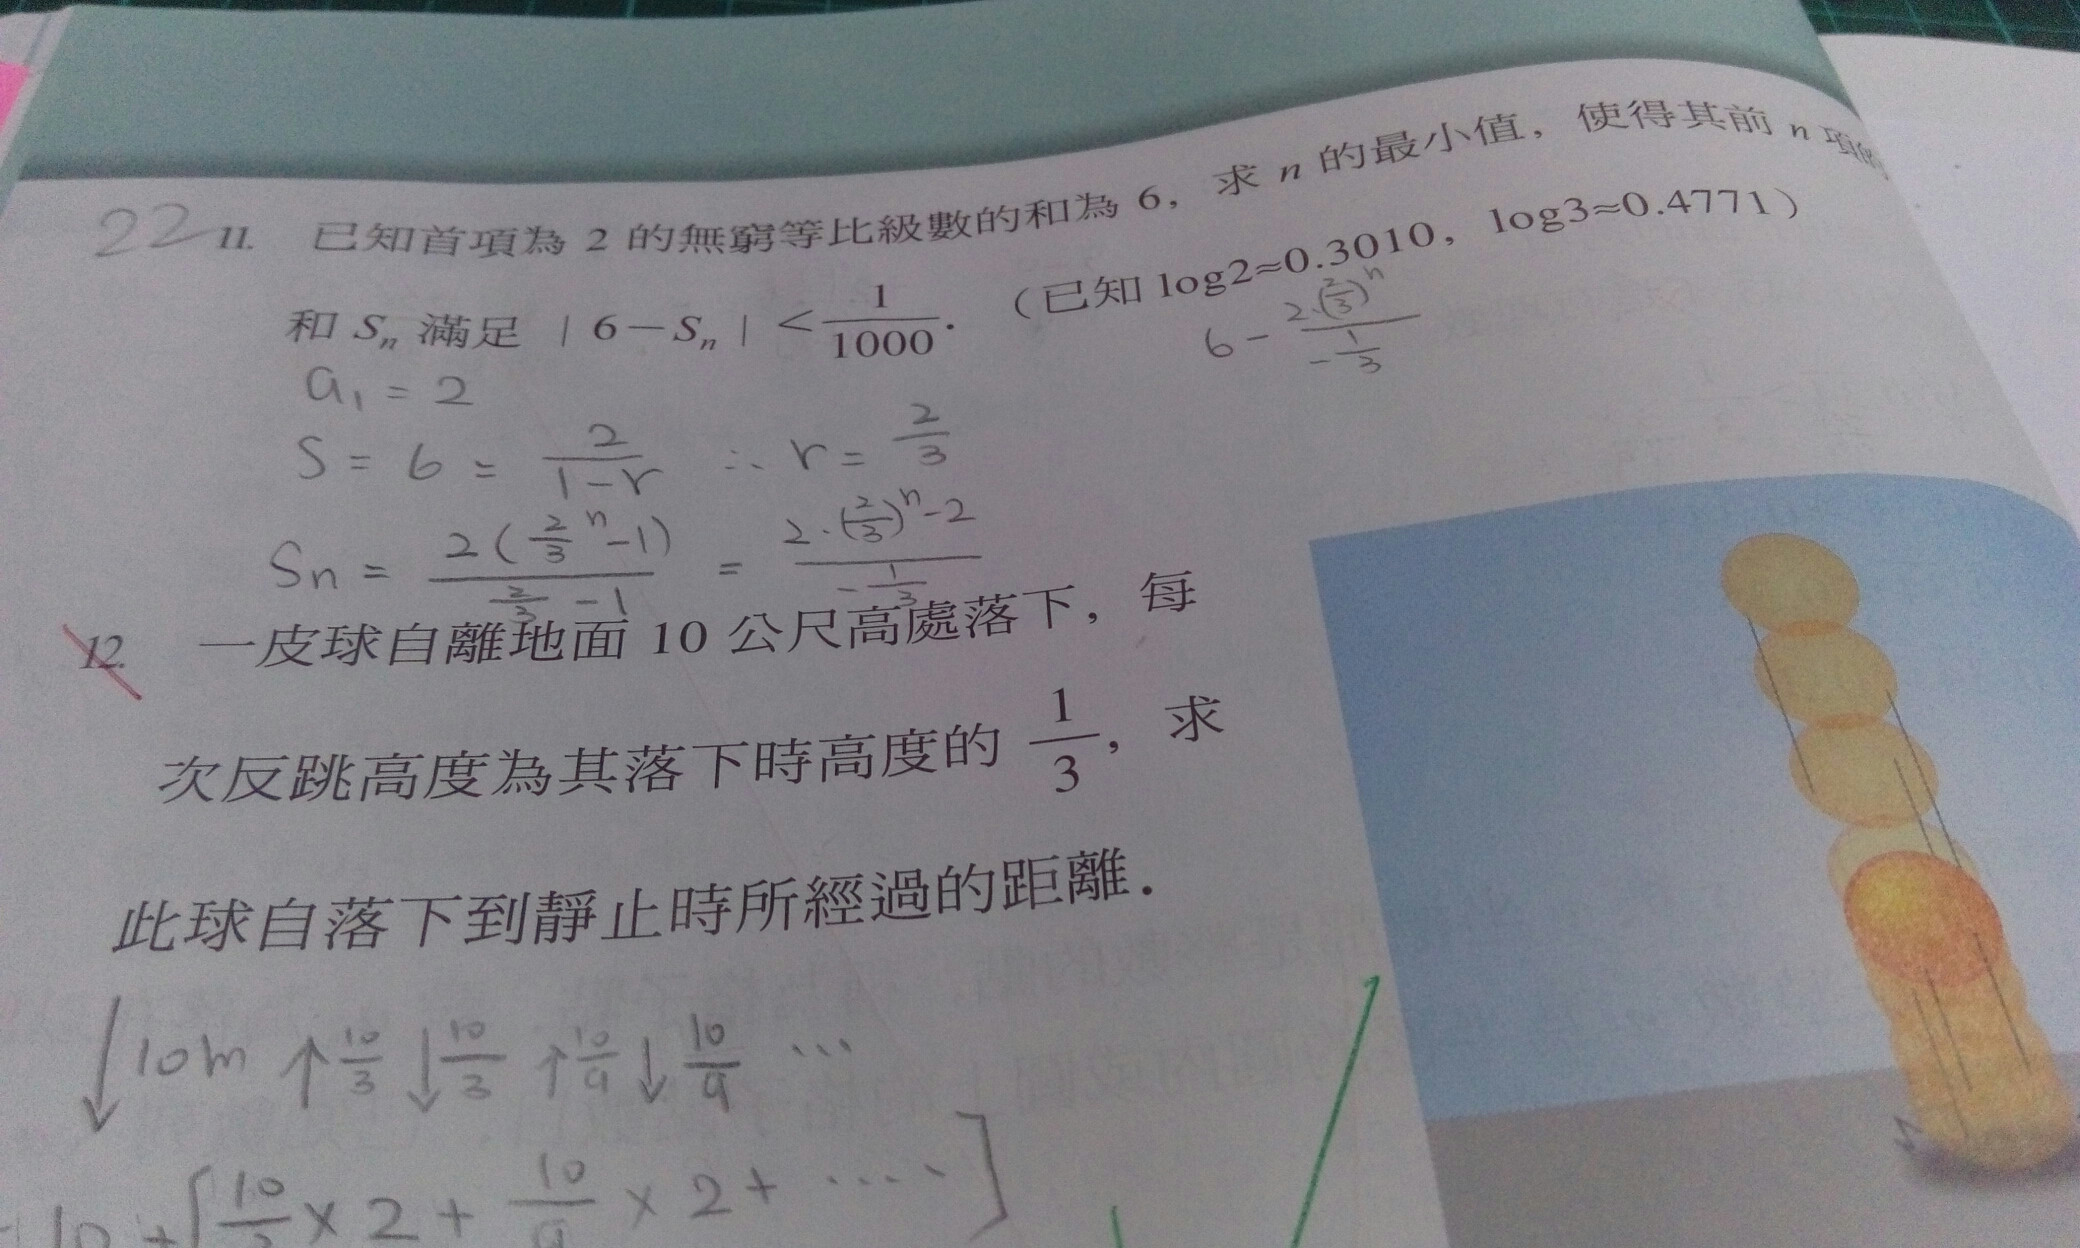 22 11. 已知首項為 2 的無窮等比級數的和為 6，求 n 的最小值，使得其前 n 項的
和 Sₙ 滿足 | 6－Sₙ | < 1/1000．（已知 log2≈0.3010，log3≈0.4771）
6 - 2·(2/3)ⁿ / -1/3
a₁ = 2
S = 6 = 2/(1-r) ∴ r = 2/3
Sn = 2(2/3ⁿ-1) / (2/3 -1) = 2·(2/3)ⁿ-2 / -1/3
12. 一皮球自離地面 10 公尺高處落下，每
次反跳高度為其落下時高度的 1/3，求
此球自落下到靜止時所經過的距離．
↓10m ↑10/3 ↓10/3 ↑10/9 ↓10/9 ...
10 + [10/3 × 2 + 10/9 × 2 + ....]